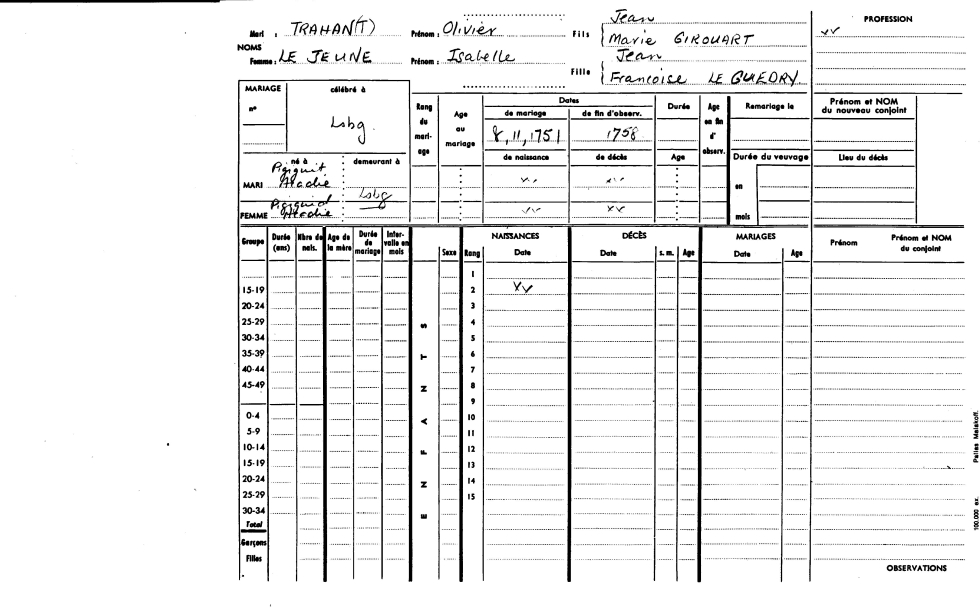 Mari : TRAHAN(T) Prénom : Olivier Fils Jean
Marie GIROUART
PROFESSION
xx
NOMS
Femme : LE JEUNE Prénom : Isabelle Fille Jean
Francoise LE GUEDRY
MARIAGE célébré à
n°
Lsbg.
Rang du mariage
Age au mariage
Dates
de mariage de fin d'observ.
8,11,1751 1758
de naissance de décès
Durée
Age
Age en fin d' observ.
Remariage le
Prénom et NOM du nouveau conjoint
Durée du veuvage
Lieu du décès
né à demeurant à
MARI Pigiguit Acadie
Lsbg
xx xx
en
FEMME Pigiguid Acadie
xx xx
mois
Groupe Durée (ans) Nbre de nais. Age de la mère Durée de mariage Intervalle en mois
ENFANTS
Sexe Rang
NAISSANCES
Date
DÉCÈS
Date s. m. Age
MARIAGES
Date Age
Prénom Prénom et NOM du conjoint
1
15-19 2 xx
20-24 3
25-29 4
30-34 5
35-39 6
40-44 7
45-49 8
9
0-4 10
5-9 11
10-14 12
15-19 13
20-24 14
25-29 15
30-34
Total
Garçons
Filles
OBSERVATIONS
100.000 ex. Pallas Malakoff.